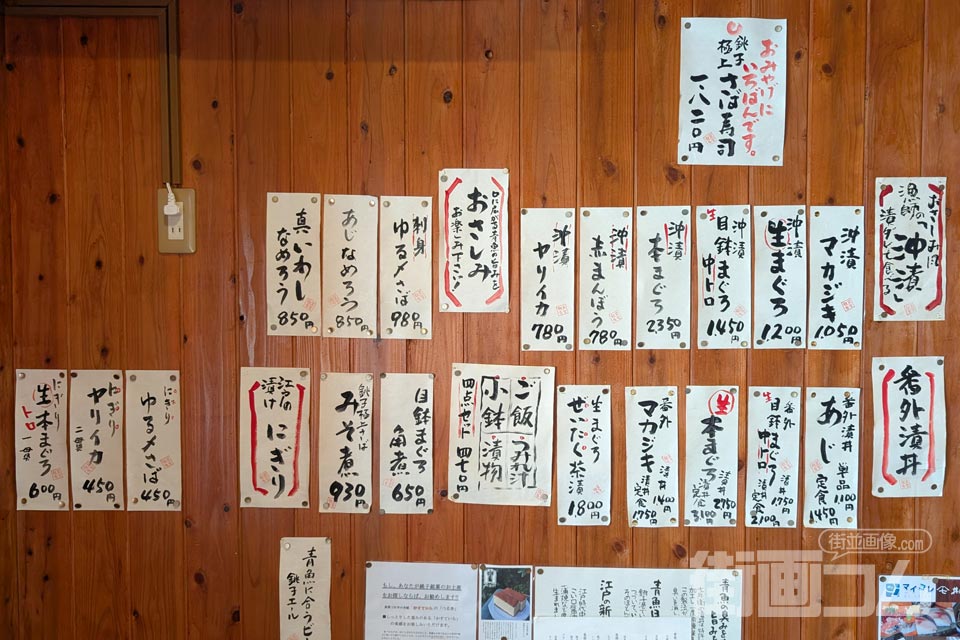 おみやげに
いちばんです。
銚子
極上さば寿司
一、八二〇円
おさしみ肉
漁師の「沖漬」
漬ダレで食べる
沖漬
マカジキ
1,050円
沖漬
生まぐろ
1,200円
生
沖漬
目鉢まぐろ
中トロ
1,450円
沖漬
本まぐろ
2,350円
沖漬
赤まんぼう
780円
沖漬
ヤリイカ
780円
おさしみ
お楽しみ下さい!
刺身
ゆる〆さば
980円
あじなめろう
850円
真いわし
なめろう
850円
番外漬丼
番外漬丼
あじ
単品1,100円
定食1,450円
生
番外
目鉢まぐろ
中トロ
漬丼1,750円
漬丼定食2,100円
生
本まぐろ
漬丼2,750円
漬丼定食3,100円
番外
マカジキ
漬丼1,400円
漬丼定食1,750円
生まぐろ
ぜいたく茶漬
1,800円
ご飯 つみれ汁
小鉢 漬物
四点セット 四七〇円
目鉢まぐろ
角煮
650円
銚子極上さば
みそ煮
930円
江戸の
漬け
にぎり
にぎり
ゆる〆さば
450円
にぎり
ヤリイカ
二貫
450円
にぎり
生本まぐろ
トロ
一貫
600円
青魚に合うビ
銚子エール
もし、あなたが銚子銘菓のお土産
をお探しならば、お勧めします!!
江戸の新
青魚
街並画像.com
街画コム